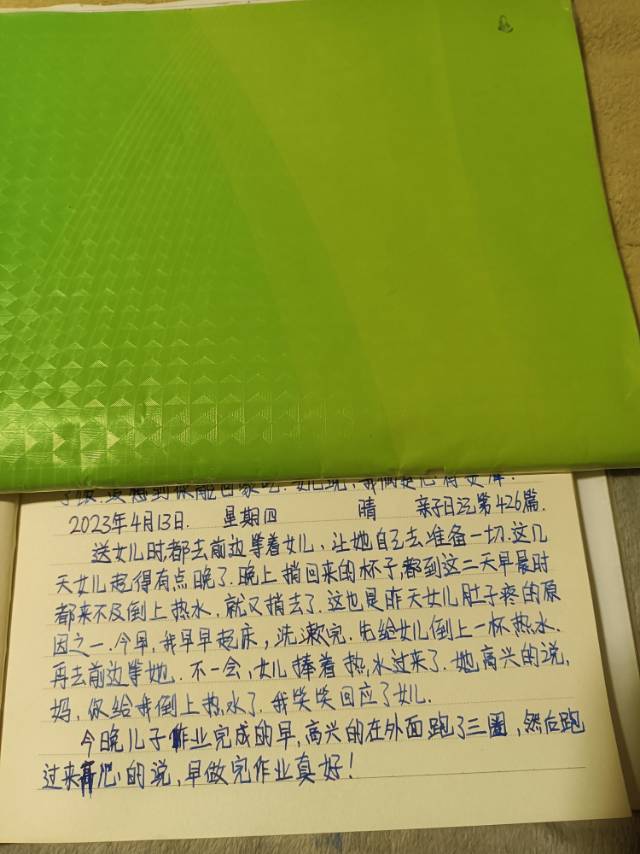 2023年4月13日. 星期四 晴 亲子日记第426篇.
送女儿时,都去前边等着女儿,让她自己去准备一切.这几
天女儿起得有点晚了.晚上捎回来的杯子,都到这二天早晨时
都来不及倒上热水,就又捎去了.这也是昨天女儿肚子疼的原
因之一.今早,我早早起床,洗漱完.先给女儿倒上一杯热水.
再去前边等她.不一会,女儿捧着热水过来了.她高兴的说,
妈,你给我倒上热水了.我笑笑回应了女儿.
今晚儿子作业完成的早,高兴的在外面跑了三圈,然后跑
过来开心的说,早做完作业真好!